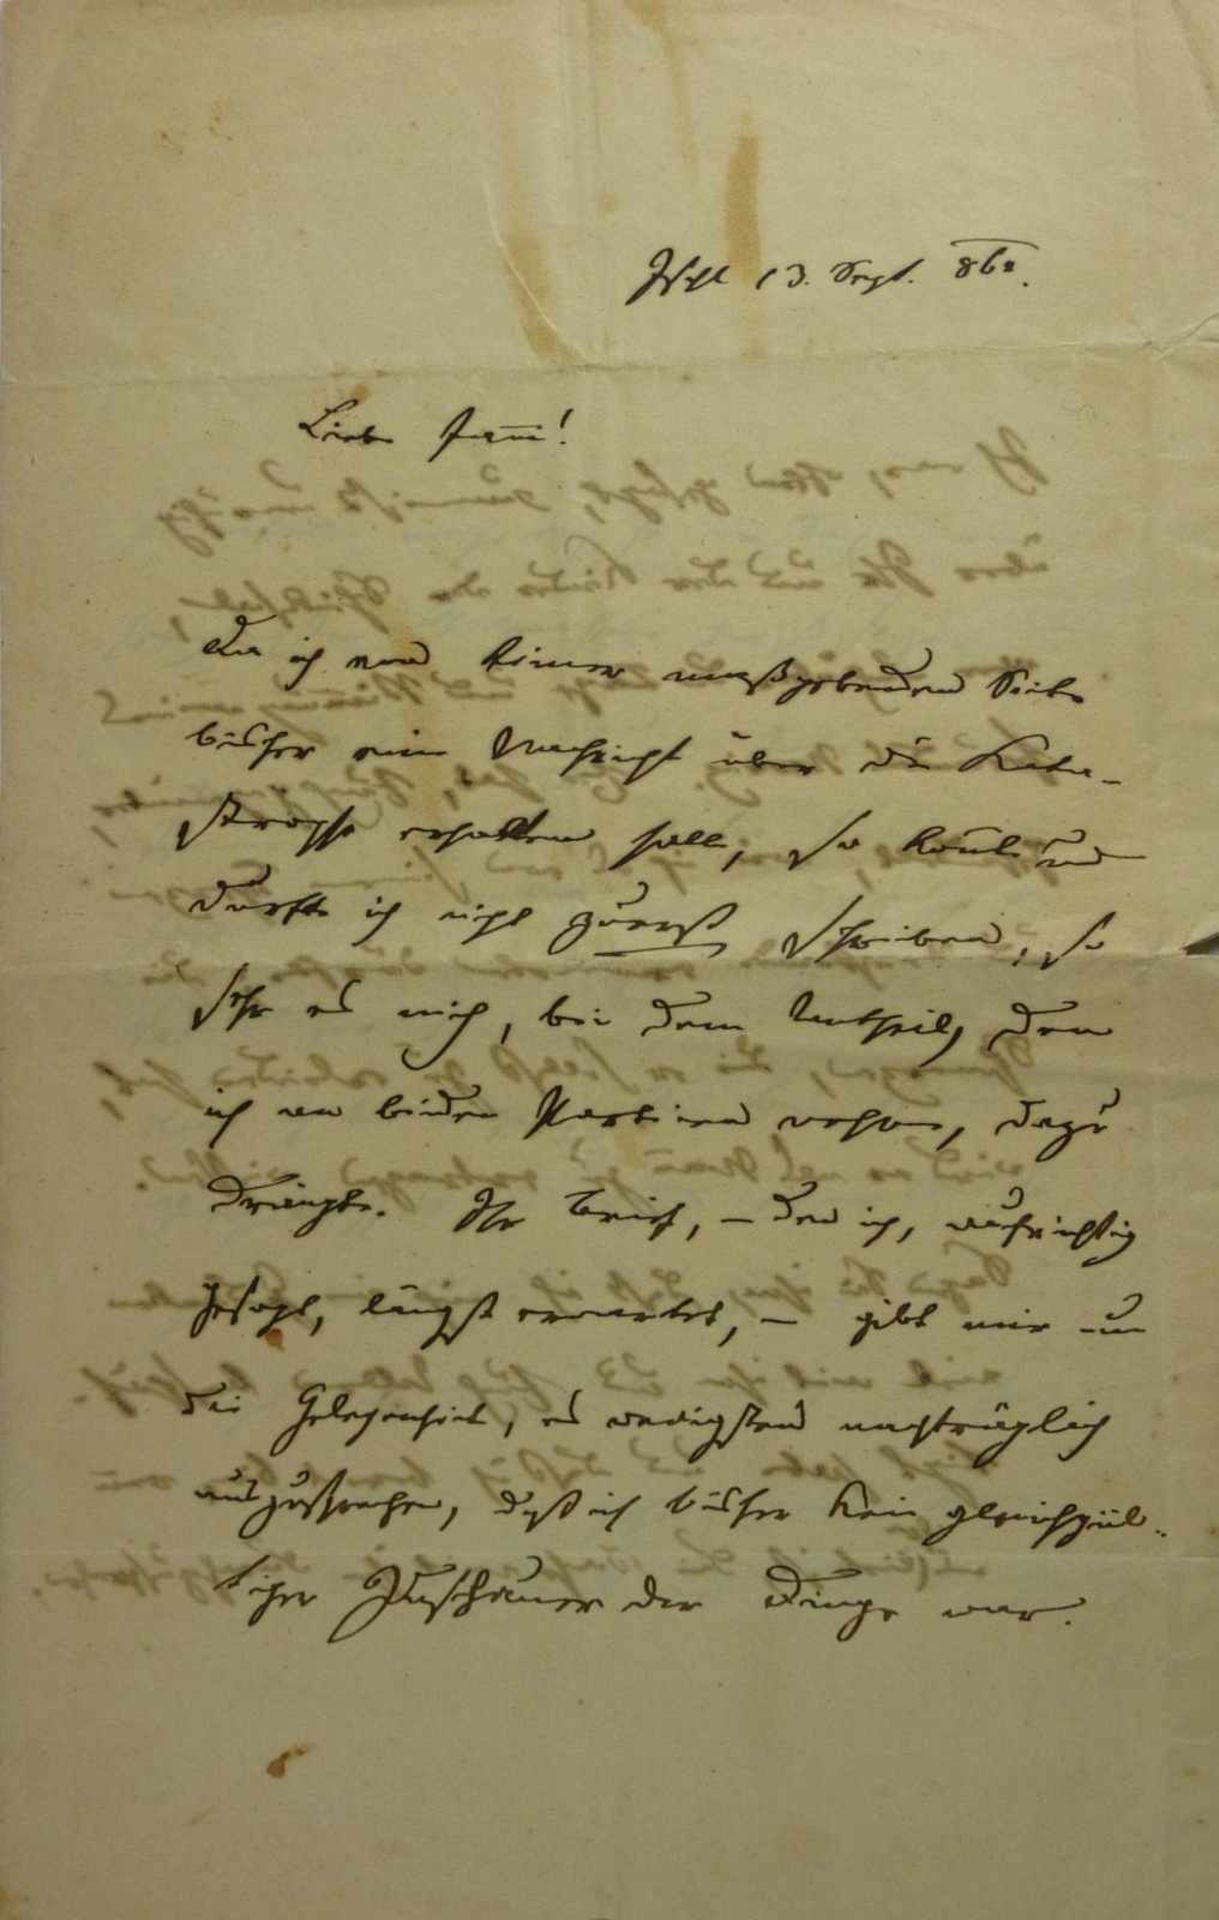 Ischl 13. Sept. 862.
Liebe Fanni!
Da ich von keiner maßgebenden Seite
bisher eine Nachricht über die Kata-
strophe erhalten hatte, so konnte und
durfte ich nicht zuerst schreiben, so
sehr es mich, bei dem Antheil, den
ich an beiden Parteien nehme, dazu
drängte. Ihr Brief, – den ich, aufrichtig
gesagt, längst erwartet, – gibt mir nun
die Gelegenheit, es wenigstens nachträglich
auszusprechen, daß ich bisher kein gleichgül-
tiger Zuschauer der Dinge war.